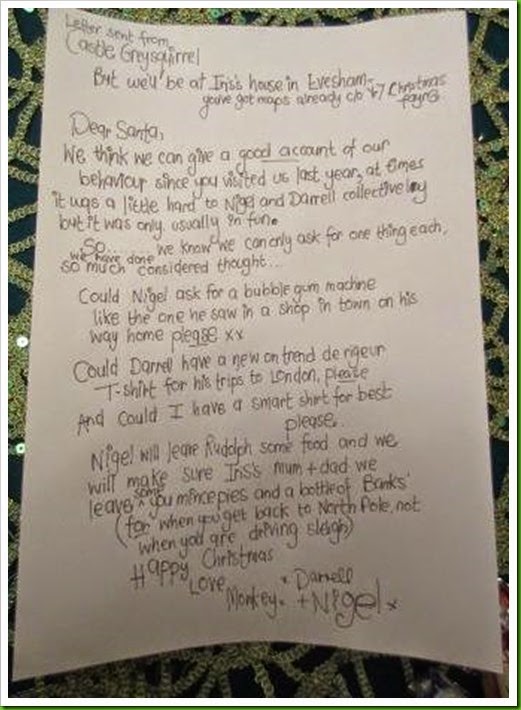 Letter sent from
Castle Greysquirrel
But we'll be at Iris's house in Evesham-
you've got maps already c/o Christmas
Dear Santa,
We think we can give a good account of our
behaviour since you visited us last year, at times
it was a little hard to Nigel and Darrell collectively
but it was only usually in fun.
So....... we know we can only ask for one thing each,
we have done
so much considered thought...
Could Nigel ask for a bubble gum machine
like the one he saw in a shop in town on his
way home please xx
Could Darrell have a new on trend de rigeur
T-shirt for his trips to London, please
And could I have a smart shirt for best
please.
Nigel will leave Rudolph some food and we
will make sure Iris's mum + dad we
leave some you mince pies and a bottle of Banks'
(for when you get back to North Pole, not
when you are driving sleigh)
Happy Christmas
Love x Darrell
Monkey x + Nigel x